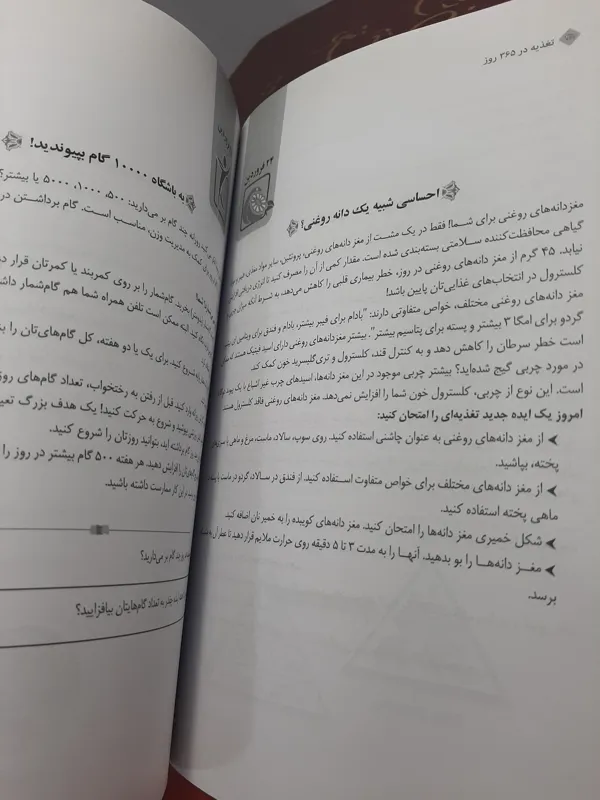 تغذیه در ۳۶۵ روز
۲۴ فروردین
احساسی شبیه یک دانه روغنی؟
مغزدانه‌های روغنی برای شما! فقط در یک مشت از مغز دانه‌های روغنی، پروتئین، سایر مواد مغذی، فیبر و مواد
گیاهی محافظت‌کننده سلامتی بسته‌بندی شده است. مقدار کمی از آن را مصرف کنید تا انرژی دریافتی
نیابد. ۴۵ گرم از مغز دانه‌های روغنی در روز، خطر بیماری قلبی را کاهش می‌دهد، به شرط آنکه میزان چربی و
کلسترول در انتخاب‌های غذایی‌تان پایین باشد!
مغز دانه‌های روغنی مختلف، خواص متفاوتی دارند: "بادام برای فیبر بیشتر، بادام و فندق برای ویتامین ای
گردو برای امگا ۳ بیشتر و پسته برای پتاسیم بیشتر". بیشتر مغزدانه‌های روغنی دارای اسید فیتیک هستند که ممکن
است خطر سرطان را کاهش دهد و به کنترل قند، کلسترول و تری‌گلیسرید خون کمک کند.
در مورد چربی گیج شده‌اید؟ بیشتر چربی موجود در این مغز دانه‌ها، اسیدهای چرب غیر اشباع با یک پیوند
است. این نوع از چربی، کلسترول خون شما را افزایش نمی‌دهد. مغز دانه‌های روغنی فاقد کلسترول هستند.
امروز یک ایده جدید تغذیه‌ای را امتحان کنید:
➤ از مغز دانه‌های روغنی به عنوان چاشنی استفاده کنید. روی سوپ، سالاد، ماست، مرغ و ماهی یا سبزی‌های
پخته، بپاشید.
➤ از مغز دانه‌های مختلف برای خواص متفاوت استفاده کنید. از فندق در سالاد، گردو در ماست یا پسته در
ماهی پخته استفاده کنید.
➤ شکل خمیری مغز دانه‌ها را امتحان کنید. مغز دانه‌های کوبیده را به خمیر نان اضافه کنید.
➤ مغز دانه‌ها را بو بدهید. آنها را به مدت ۳ تا ۵ دقیقه روی حرارت ملایم قرار دهید تا عطر آن به مشام
برسد.
به باشگاه ۱۰۰۰۰ گام بپیوندید!
روزانه چند گام بر می‌دارید: ۵۰۰، ۱۰۰۰، ۵۰۰۰ یا بیشتر؟
کمک به مدیریت وزن، مناسب است. گام برداشتن در
بخرید. گام‌شمار را بر روی کمربند یا کمرتان قرار د
کنید. البته ممکن است تلفن همراه شما هم گام‌شمار داش
شروع کنید. برای یک یا دو هفته، کل گام‌های‌تان را بن
کنید. قبل از رفتن به رختخواب، تعداد گام‌های روز
بپوشید و شروع به حرکت کنید! یک هدف بزرگ تعی
گام برداشته اید، بتوانید روزتان را شروع کنید.
افزایش دهید. هر هفته ۵۰۰ گام بیشتر در روز را
در این کار ممارست داشته باشید.
گام بر می‌دارید؟
چقدر به تعداد گام‌هایتان بیافزایید؟